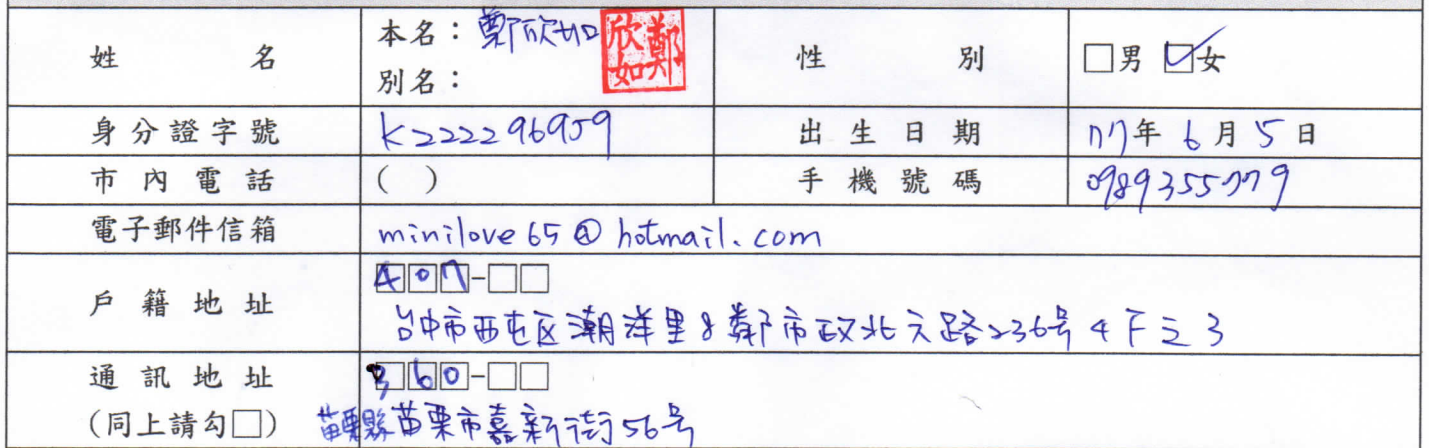 姓名 本名：鄭欣如 鄭欣如 性別 □男 ☑女
別名：
身分證字號 K222296959 出生日期 77年6月5日
市內電話 ( ) 手機號碼 0989355779
電子郵件信箱 minilove65@hotmail.com
戶籍地址 407-□□
台中市西屯区潮洋里8鄰市政北六路236号4F之3
通訊地址 360-□□
(同上請勾□) 苗栗縣苗栗市嘉新街56号